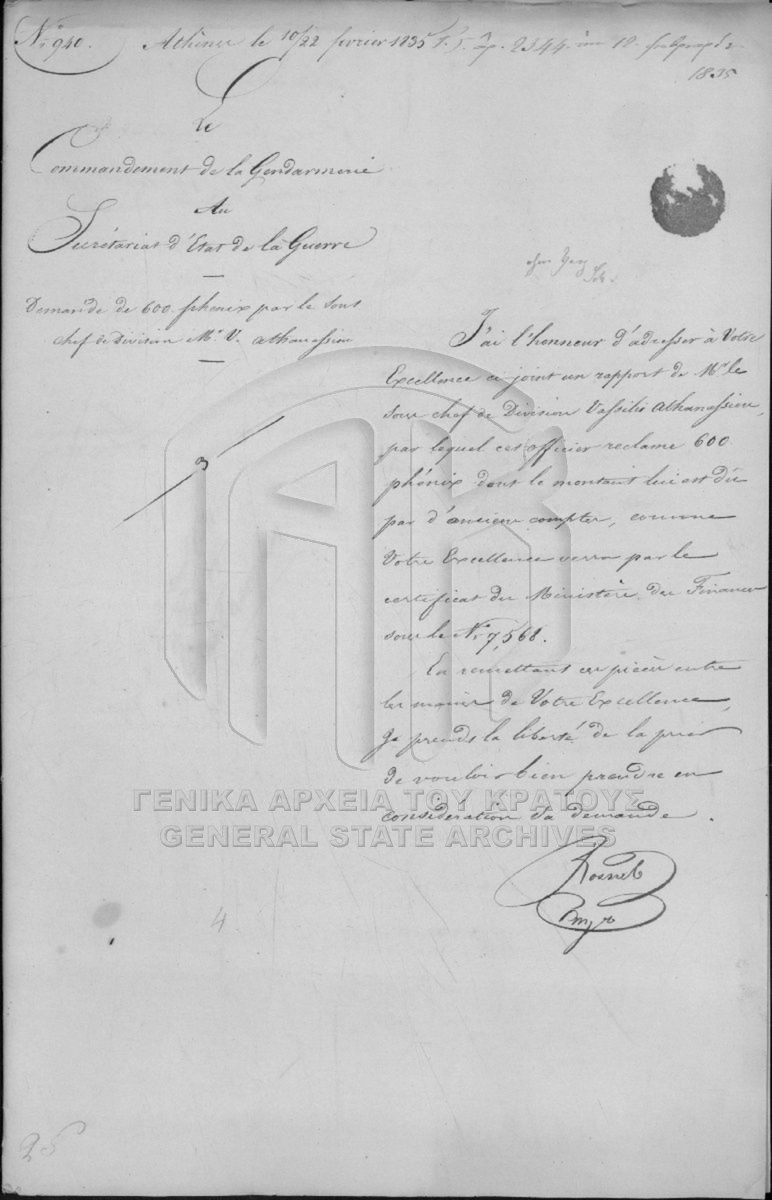 N° 940. Athènes le 10/22 fevrier 1835 2344
1835
Le
Commandement de la Gendarmerie
Au
Secrétariat d'Etat de la Guerre
Demande de 600 phénix par le sous
chef de Division Mr V. Athanassiou
J'ai l'honneur d'adresser à Votre
Excellence ci joint un rapport de Mr le
sous chef de Division Vassilis Athanassiou,
par lequel cet officier reclame 600
phénix dont le montant lui est dû
par d'anciens comptes, comme
Votre Excellence verra par le
certificat du Ministère des Finances
sous le N° 7,568.
En remettant ces pièces entre
les mains de Votre Excellence,
je prends la liberté de la prier
de vouloir bien prendre en
consideration sa demande.
4
ΓΕΝΙΚΑ ΑΡΧΕΙΑ ΤΟΥ ΚΡΑΤΟΥΣ
GENERAL STATE ARCHIVES